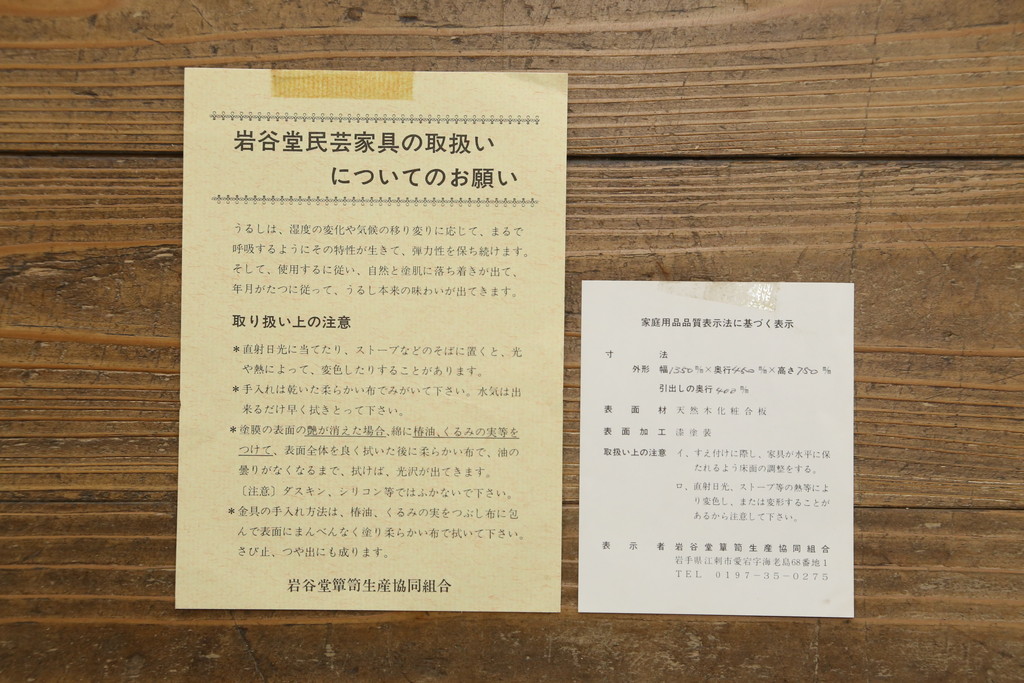 岩谷堂民芸家具の取扱い
についてのお願い
うるしは、湿度の変化や気候の移り変りに応じて、まるで
呼吸するようにその特性が生きて、弾力性を保ち続けます。
そして、使用するに従い、自然と塗肌に落ち着きが出て、
年月がたつに従って、うるし本来の味わいが出てきます。
取り扱い上の注意
＊直射日光に当てたり、ストーブなどのそばに置くと、光
や熱によって、変色したりすることがあります。
＊手入れは乾いた柔らかい布でみがいて下さい。水気は出
来るだけ早く拭きとって下さい。
＊塗膜の表面の艶が消えた場合、綿に椿油、くるみの実等を
つけて、表面全体を良く拭いた後に柔らかい布で、油の
曇りがなくなるまで、拭けば、光沢が出てきます。
〔注意〕ダスキン、シリコン等ではふかないで下さい。
＊金具の手入れ方法は、椿油、くるみの実をつぶし布に包
んで表面にまんべんなく塗り柔らかい布で拭いて下さい。
さび止、つや出にも成ります。
岩谷堂簞笥生産協同組合
家庭用品品質表示法に基づく表示
寸法
外形 幅1350㎜×奥行460㎜×高さ750㎜
引出しの奥行400㎜
表面材 天然木化粧合板
表面加工 漆塗装
取扱い上の注意 イ、すえ付けに際し、家具が水平に保
たれるよう床面の調整をする。
ロ、直射日光、ストーブ等の熱等によ
り変色し、または変形することが
あるから注意して下さい。
表示者 岩谷堂簞笥生産協同組合
岩手県江刺市愛宕字海老島68番地1
TEL 0197-35-0275